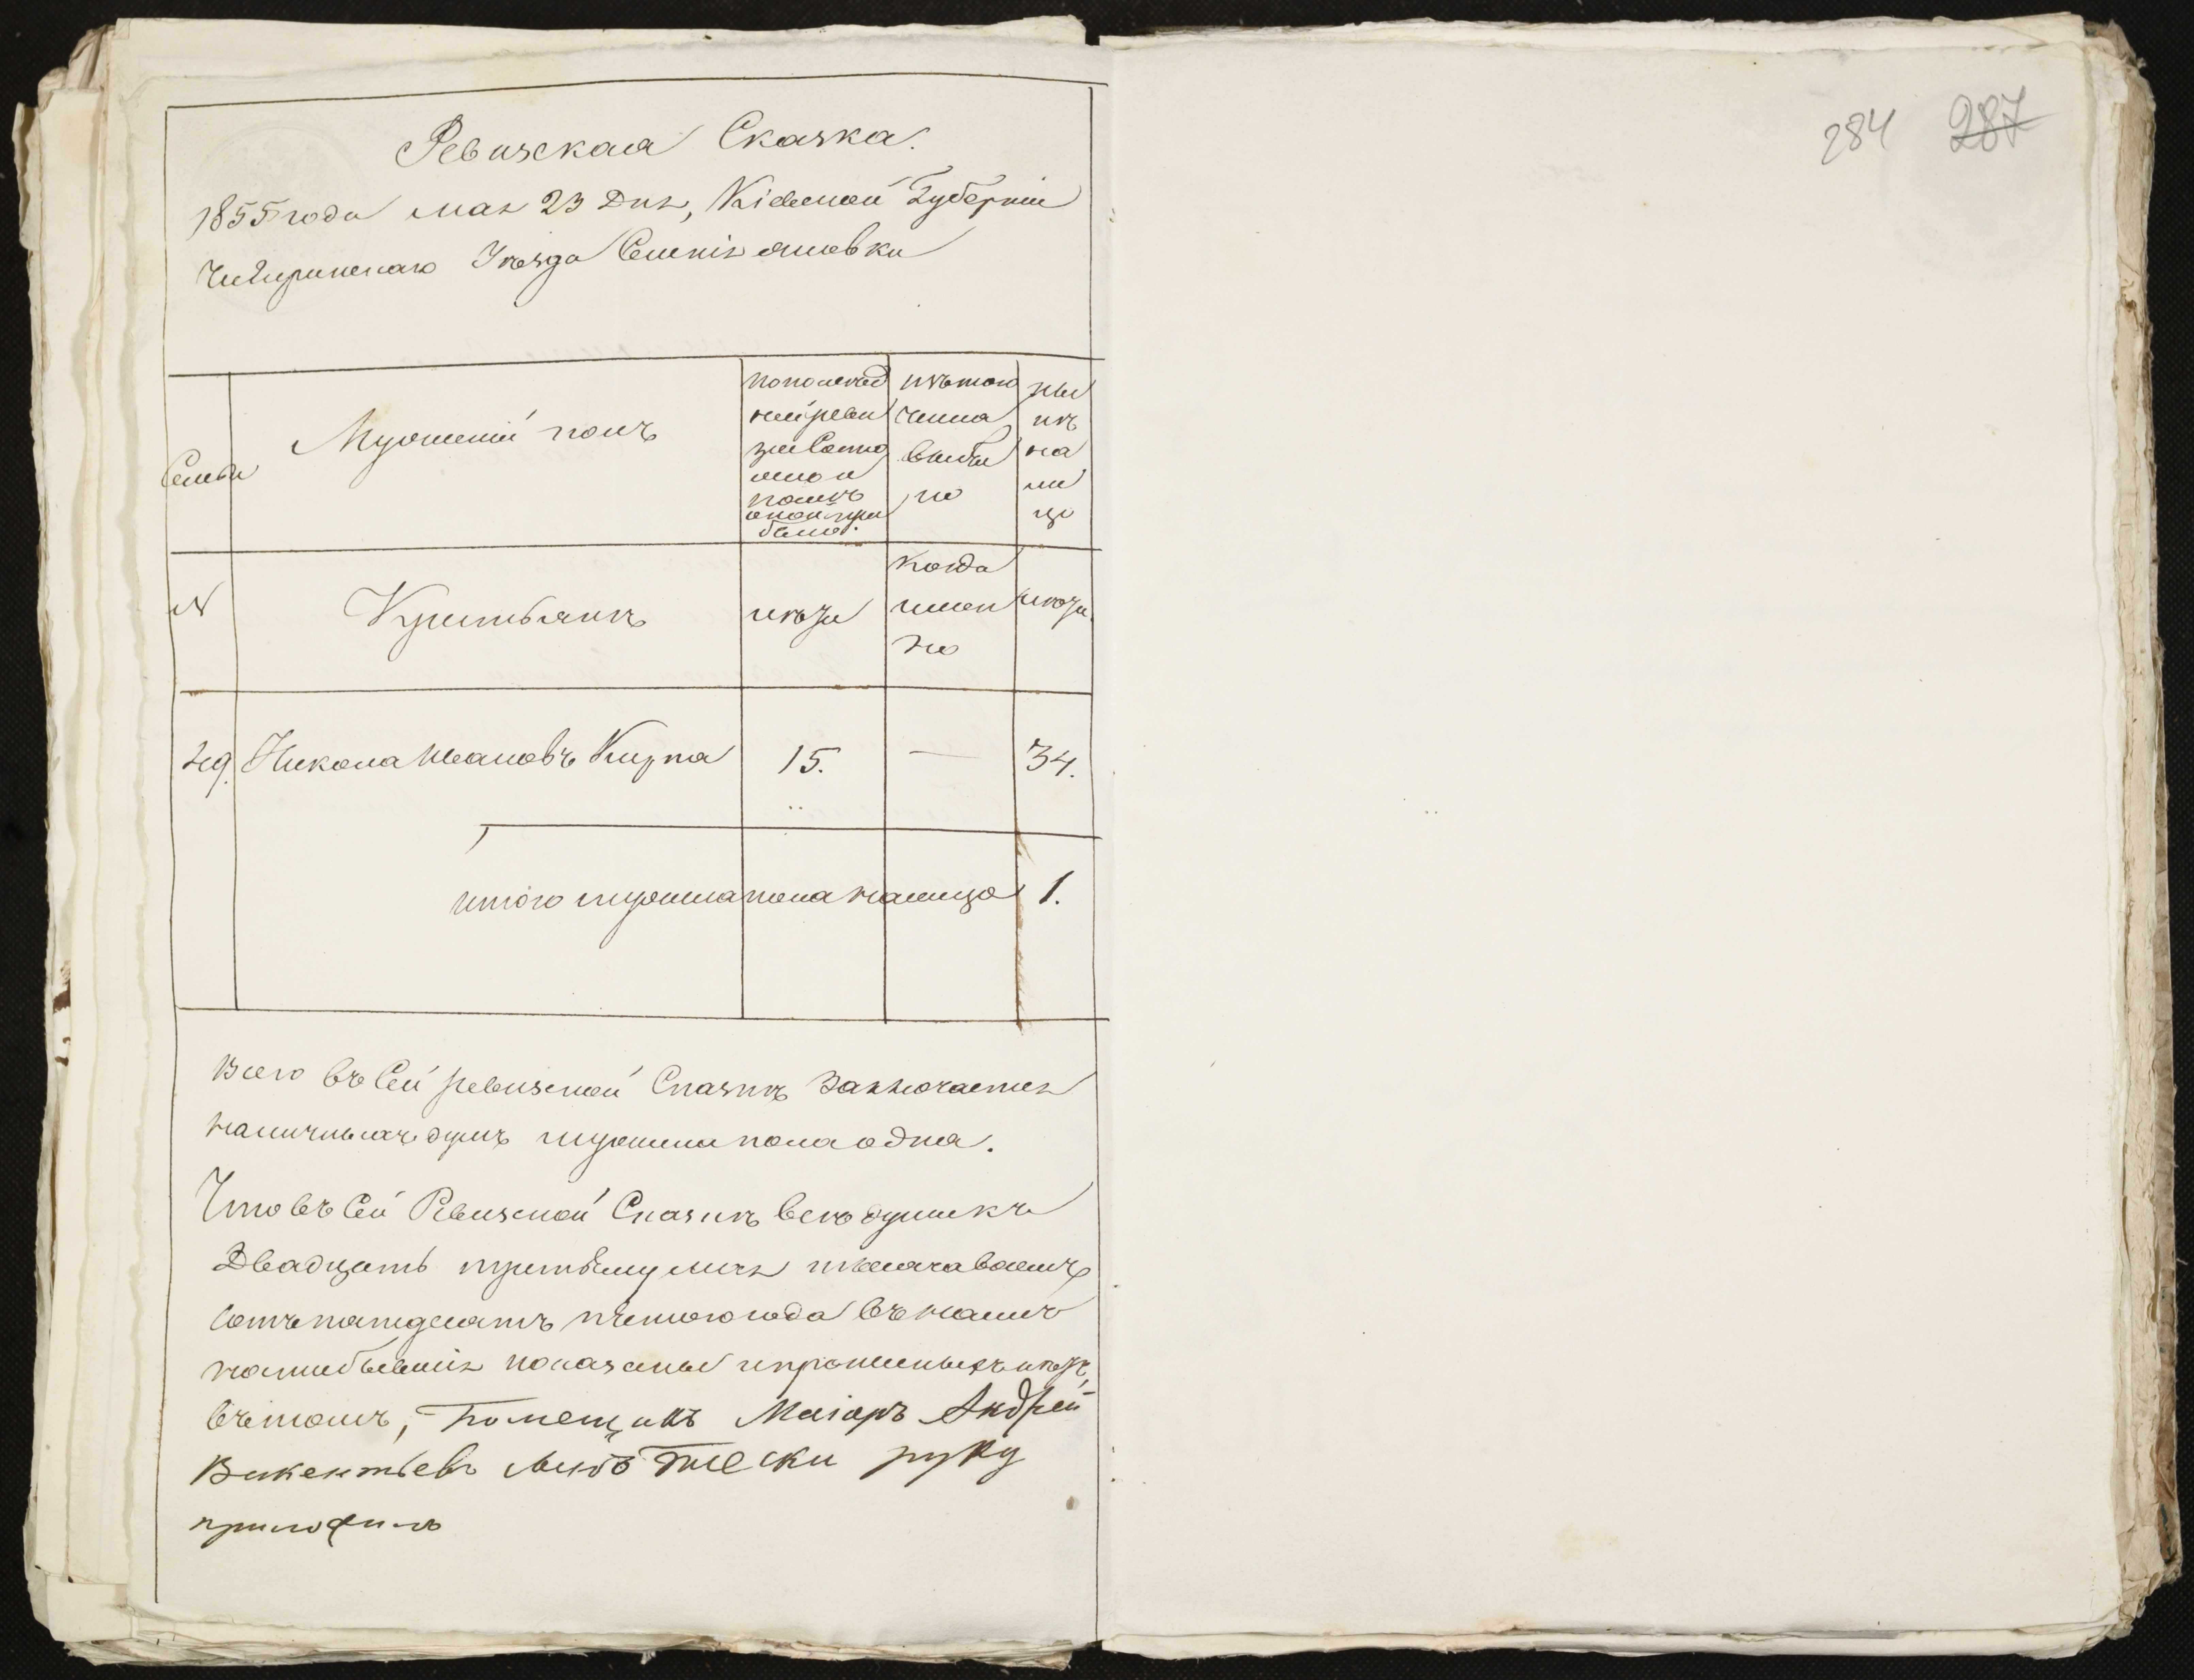 Ревизская Сказка.
1855 года мая 23 Дня, Кіевской Губерніи
Чигиринскаго Уезда Селенія
Семьи
Мужеский полъ
по послед
ней реви
зии Состо
яло и
после
оной при
было.
изътого
числа
выбы
ло
ны
не
на
ли
цо
N
Крестьянъ
лета
когда
имен
но
лета
49. Никола Ивановъ Кирпа 15. — 34.
итого мужеска пола налицо 1.
Всего въ Сей ревизской Сказке Заключается
наличныхъ душъ мужеска пола одна.
Что въ Сей Ревизской Сказке все душикъ
Двадцать третьему мая тысяча восемь
сотъ пятдесятъ пятого года въ
налице бывшия показаны и прописныхъ нетъ,
вътомъ, Помещикъ Маіоръ Андрей
Викентьевъ руку
приложилъ
284 287